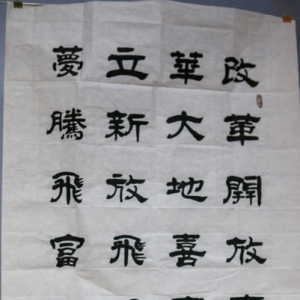 改革開放
華大地喜
立新放飛
夢騰飛富